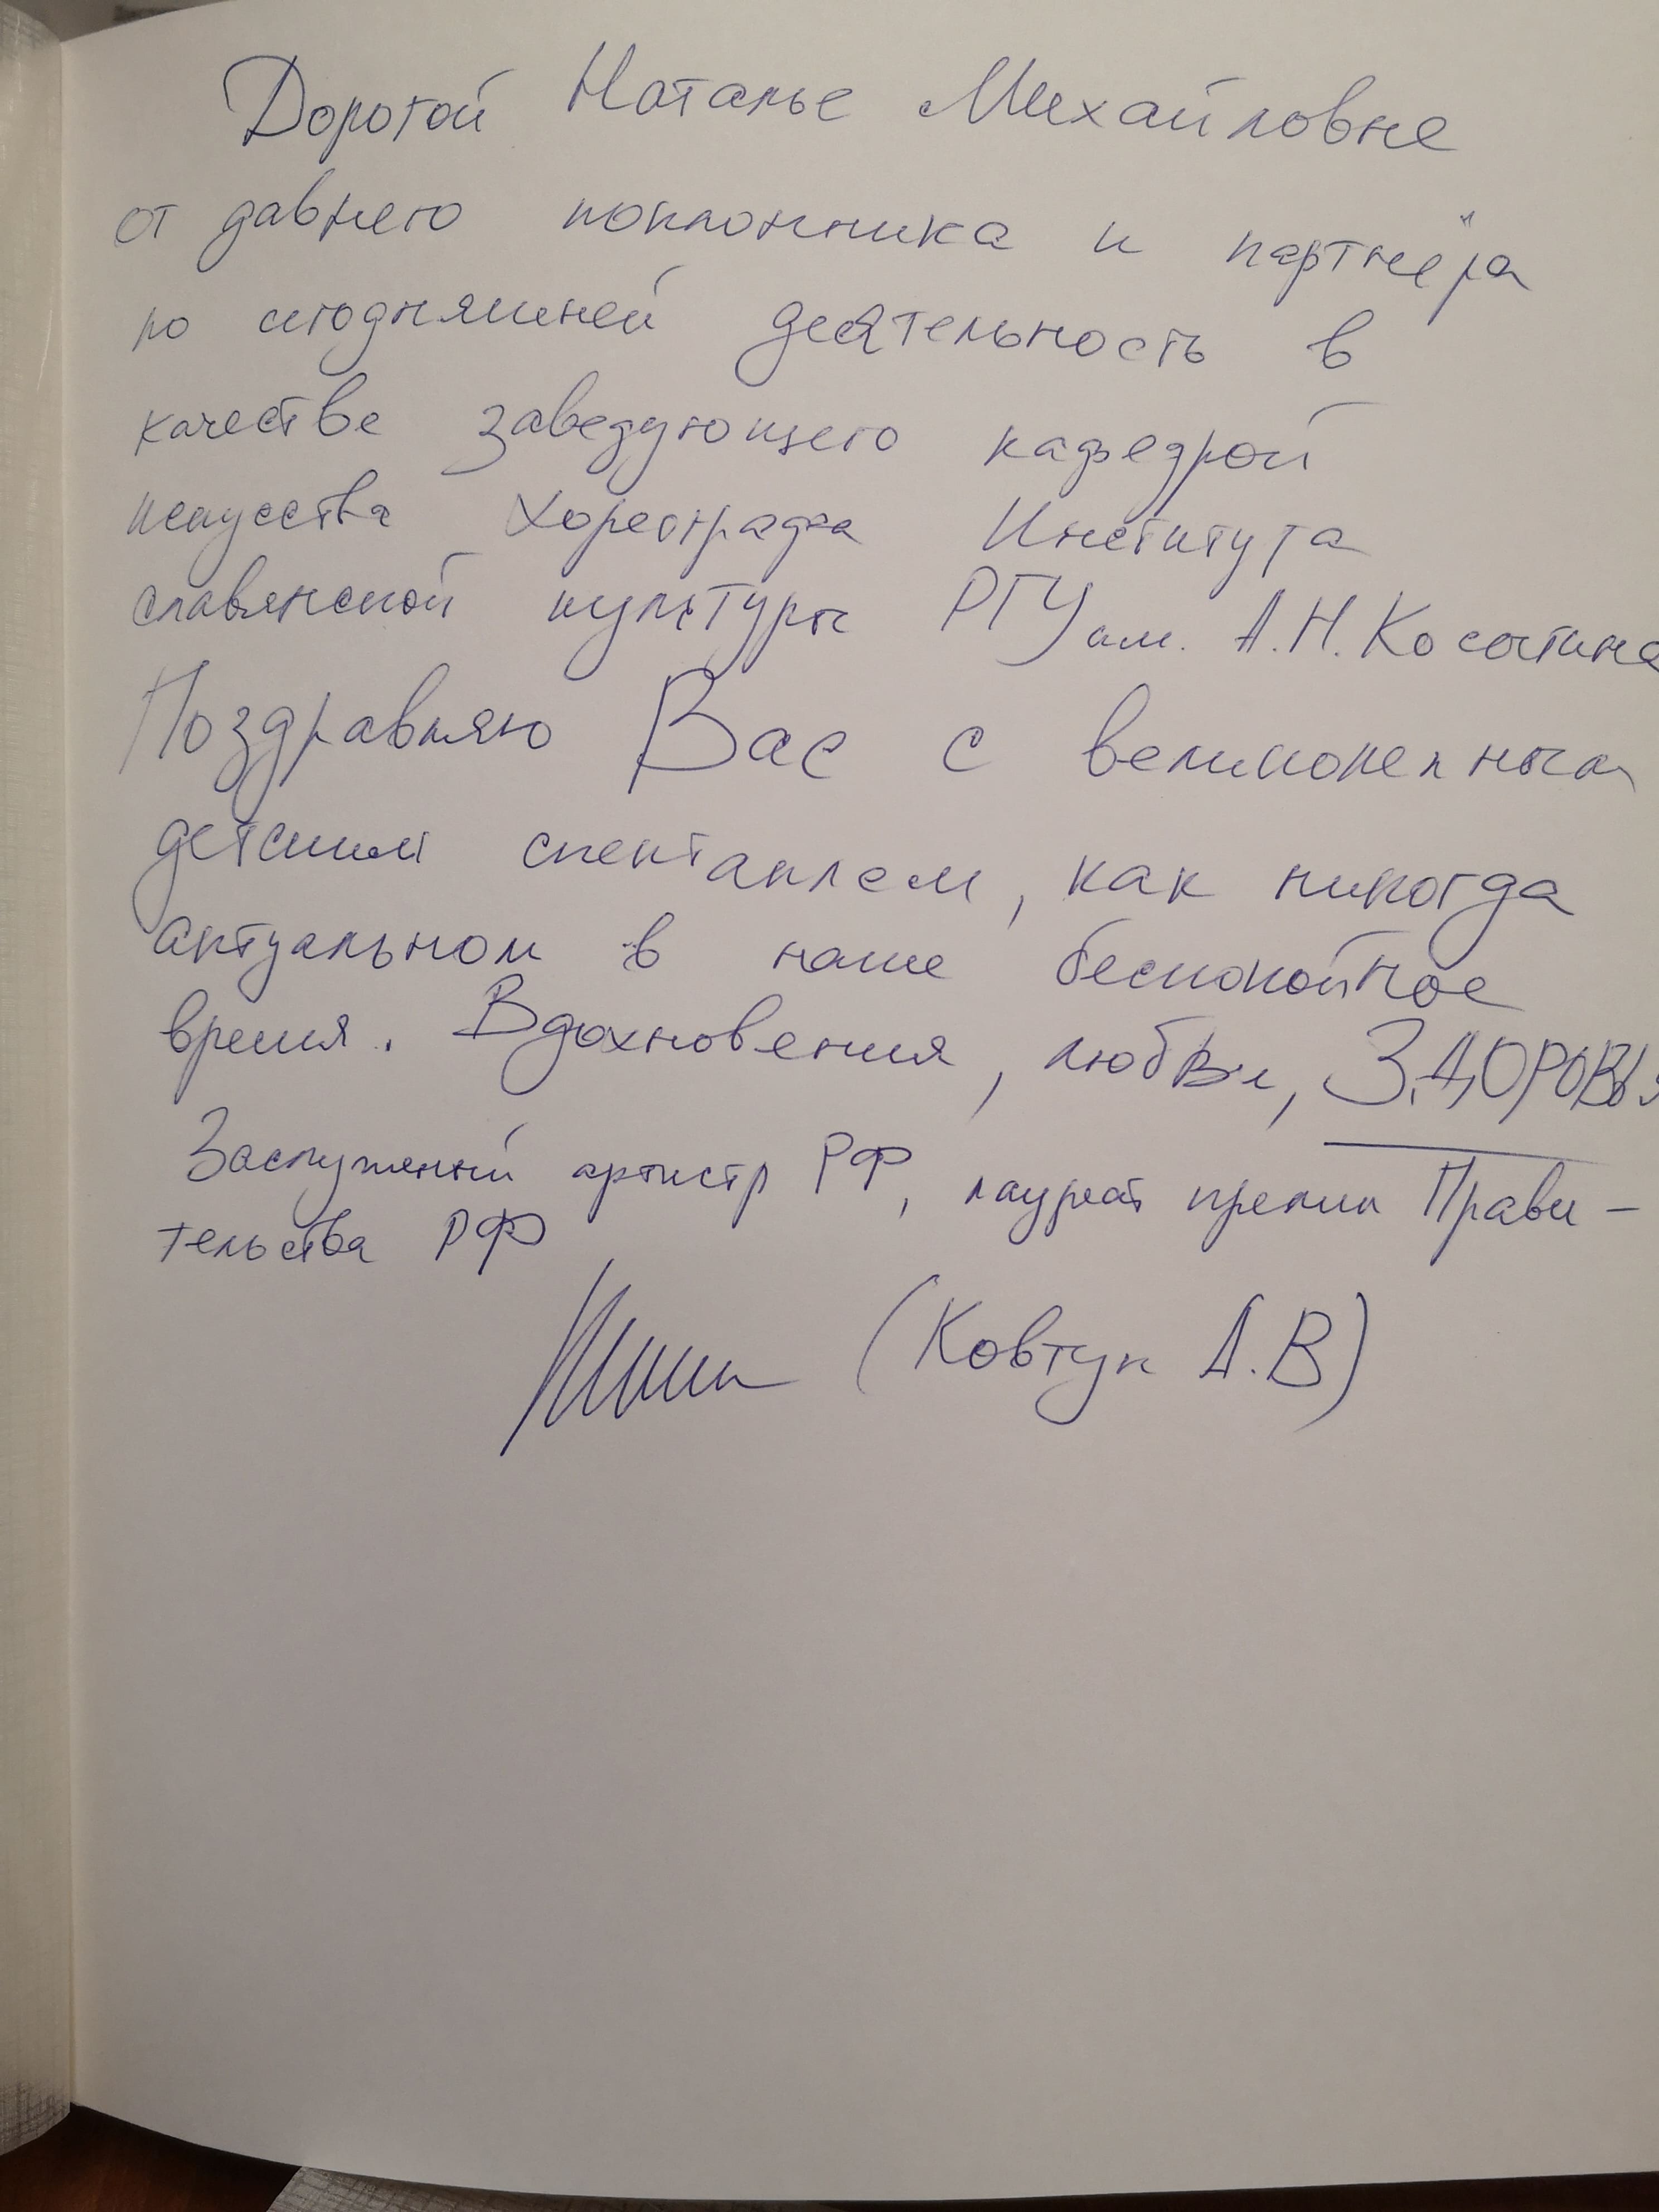 Дорогой Наталье Михайловне
от давнего поклонника и партнёра
по сегодняшней деятельность в
качестве заведующего кафедрой
искусства хореографа Института
славянской культуры РГУ им. А.Н. Косыгина
Поздравляю Вас с великолепным
детским спектаклем, как никогда
актуальном в наше беспокойное
время. Вдохновения, любви, ЗДОРОВЬЯ
Заслуженный артист РФ, лауреат премии Прави-
тельства РФ
(Ковтун А.В)